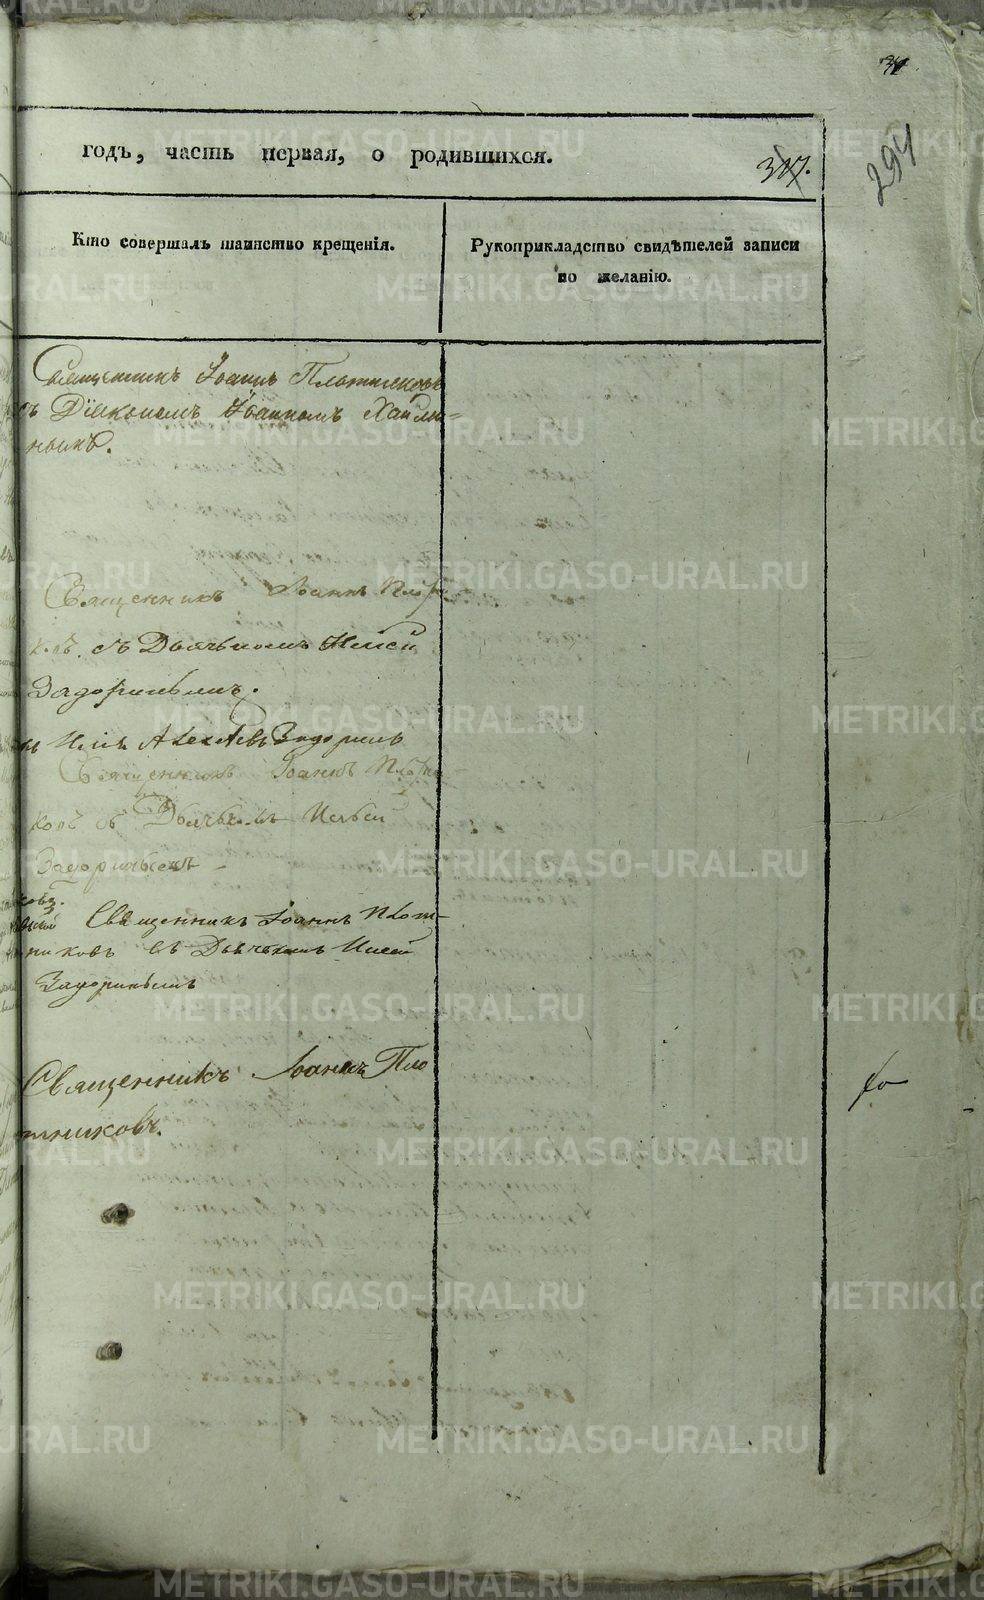 294
годъ, часть первая, о родившихся.
317.
Кто совершалъ таинство крещенія.
Рукоприкладство свидѣтелей записи
по желанію.
Священникъ Іоаннъ Плотниковъ
съ Діакономъ Іоанномъ Хаили=
нымъ.
Священникъ Іоаннъ Плотни
ковъ съ Дьячькомъ
Задоринымъ.
Задоринъ
Священникъ Іоаннъ Плотни
ковъ съ Дьячькомъ
Задоринымъ
Священникъ Іоаннъ Плот-
никовъ съ Дьячькомъ
Задоринымъ
Священникъ Іоаннъ Пло
тниковъ.
METRIKI.GASO-URAL.RU